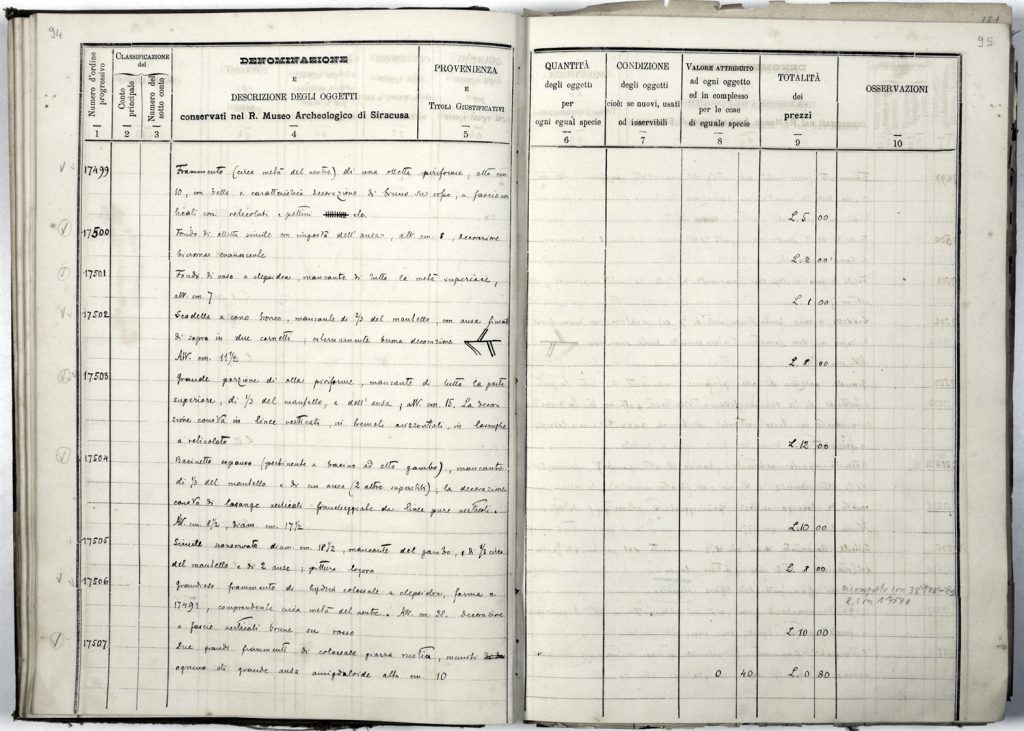 94
Numero d'ordine progressivo
CLASSIFICAZIONE del
Conto principale
Numero del sotto conto
DENOMINAZIONE
E
DESCRIZIONE DEGLI OGGETTI
conservati nel R. Museo Archeologico di Siracusa
PROVENIENZA
E
TITOLI GIUSTIFICATIVI
1 2 3 4 5
17499
Frammento (circa metà del ventre) di una olletta piriforme, alta cm.
10, con bella e caratteristica decorazione di bruno su rosso, a fascie ver
ticali con reticolati e pettini
17500
Fondo di olletta simile con imposta dell'ansa, alt. cm. 8, decorazione
bicroma evanescente
17501
Fondo di vaso a clepsidra, mancante di tutta la metà superiore,
alt. cm. 7
17502
Scodella a cono tronco, mancante di 2/3 del mantello, con ansa
di sopra in due cornetti; esternamente buona decorazione
Alt. cm. 11 1/2
17503
Grande porzione di olla piriforme, mancante di tutta la parte
superiore, di 1/3 del mantello, e dell'ansa; alt. cm. 15. La decora
zione consta di linee verticali, in orizzontali, in losanghe
a reticolato
17504
Bacinetto espanso (pertinente a bacino ad alto gambo), mancante
di 1/3 del mantello e di un ansa (2 altre superstiti); la decorazione
consta di losange verticali fiancheggiate da linee pure verticali.
Alt. cm. 8 1/2, diam. cm. 17 1/2
17505
Simile conservato diam. cm. 18 1/2, mancante del gambo, e di circa
del mantello e di 2 anse; pittura logora
17506
Grandioso frammento di hydria colossale a clepsidra, forma a
17491, comprendente circa metà del ventre. Alt. cm. 38. Decorazione
a fascie verticali brune su rosso
17507
Due grandi frammenti di colossale giarra rustica, muniti
ognuno di grande ansa amigdaloide alta cm. 10
181
95
QUANTITÀ
degli oggetti
per
ogni egual specie
CONDIZIONE
degli oggetti
cioè: se nuovi, usati
od inservibili
VALORE ATTRIBUITO
ad ogni oggetto
ed in complesso
per le cose
di eguale specie
TOTALITÀ
dei
prezzi
OSSERVAZIONI
6 7 8 9 10
L. 5 00
L. 2 00
L. 1 00
L. 8 00
L. 12 00
L. 10 00
L. 8 00
L. 10 00
0 40 L. 0 80